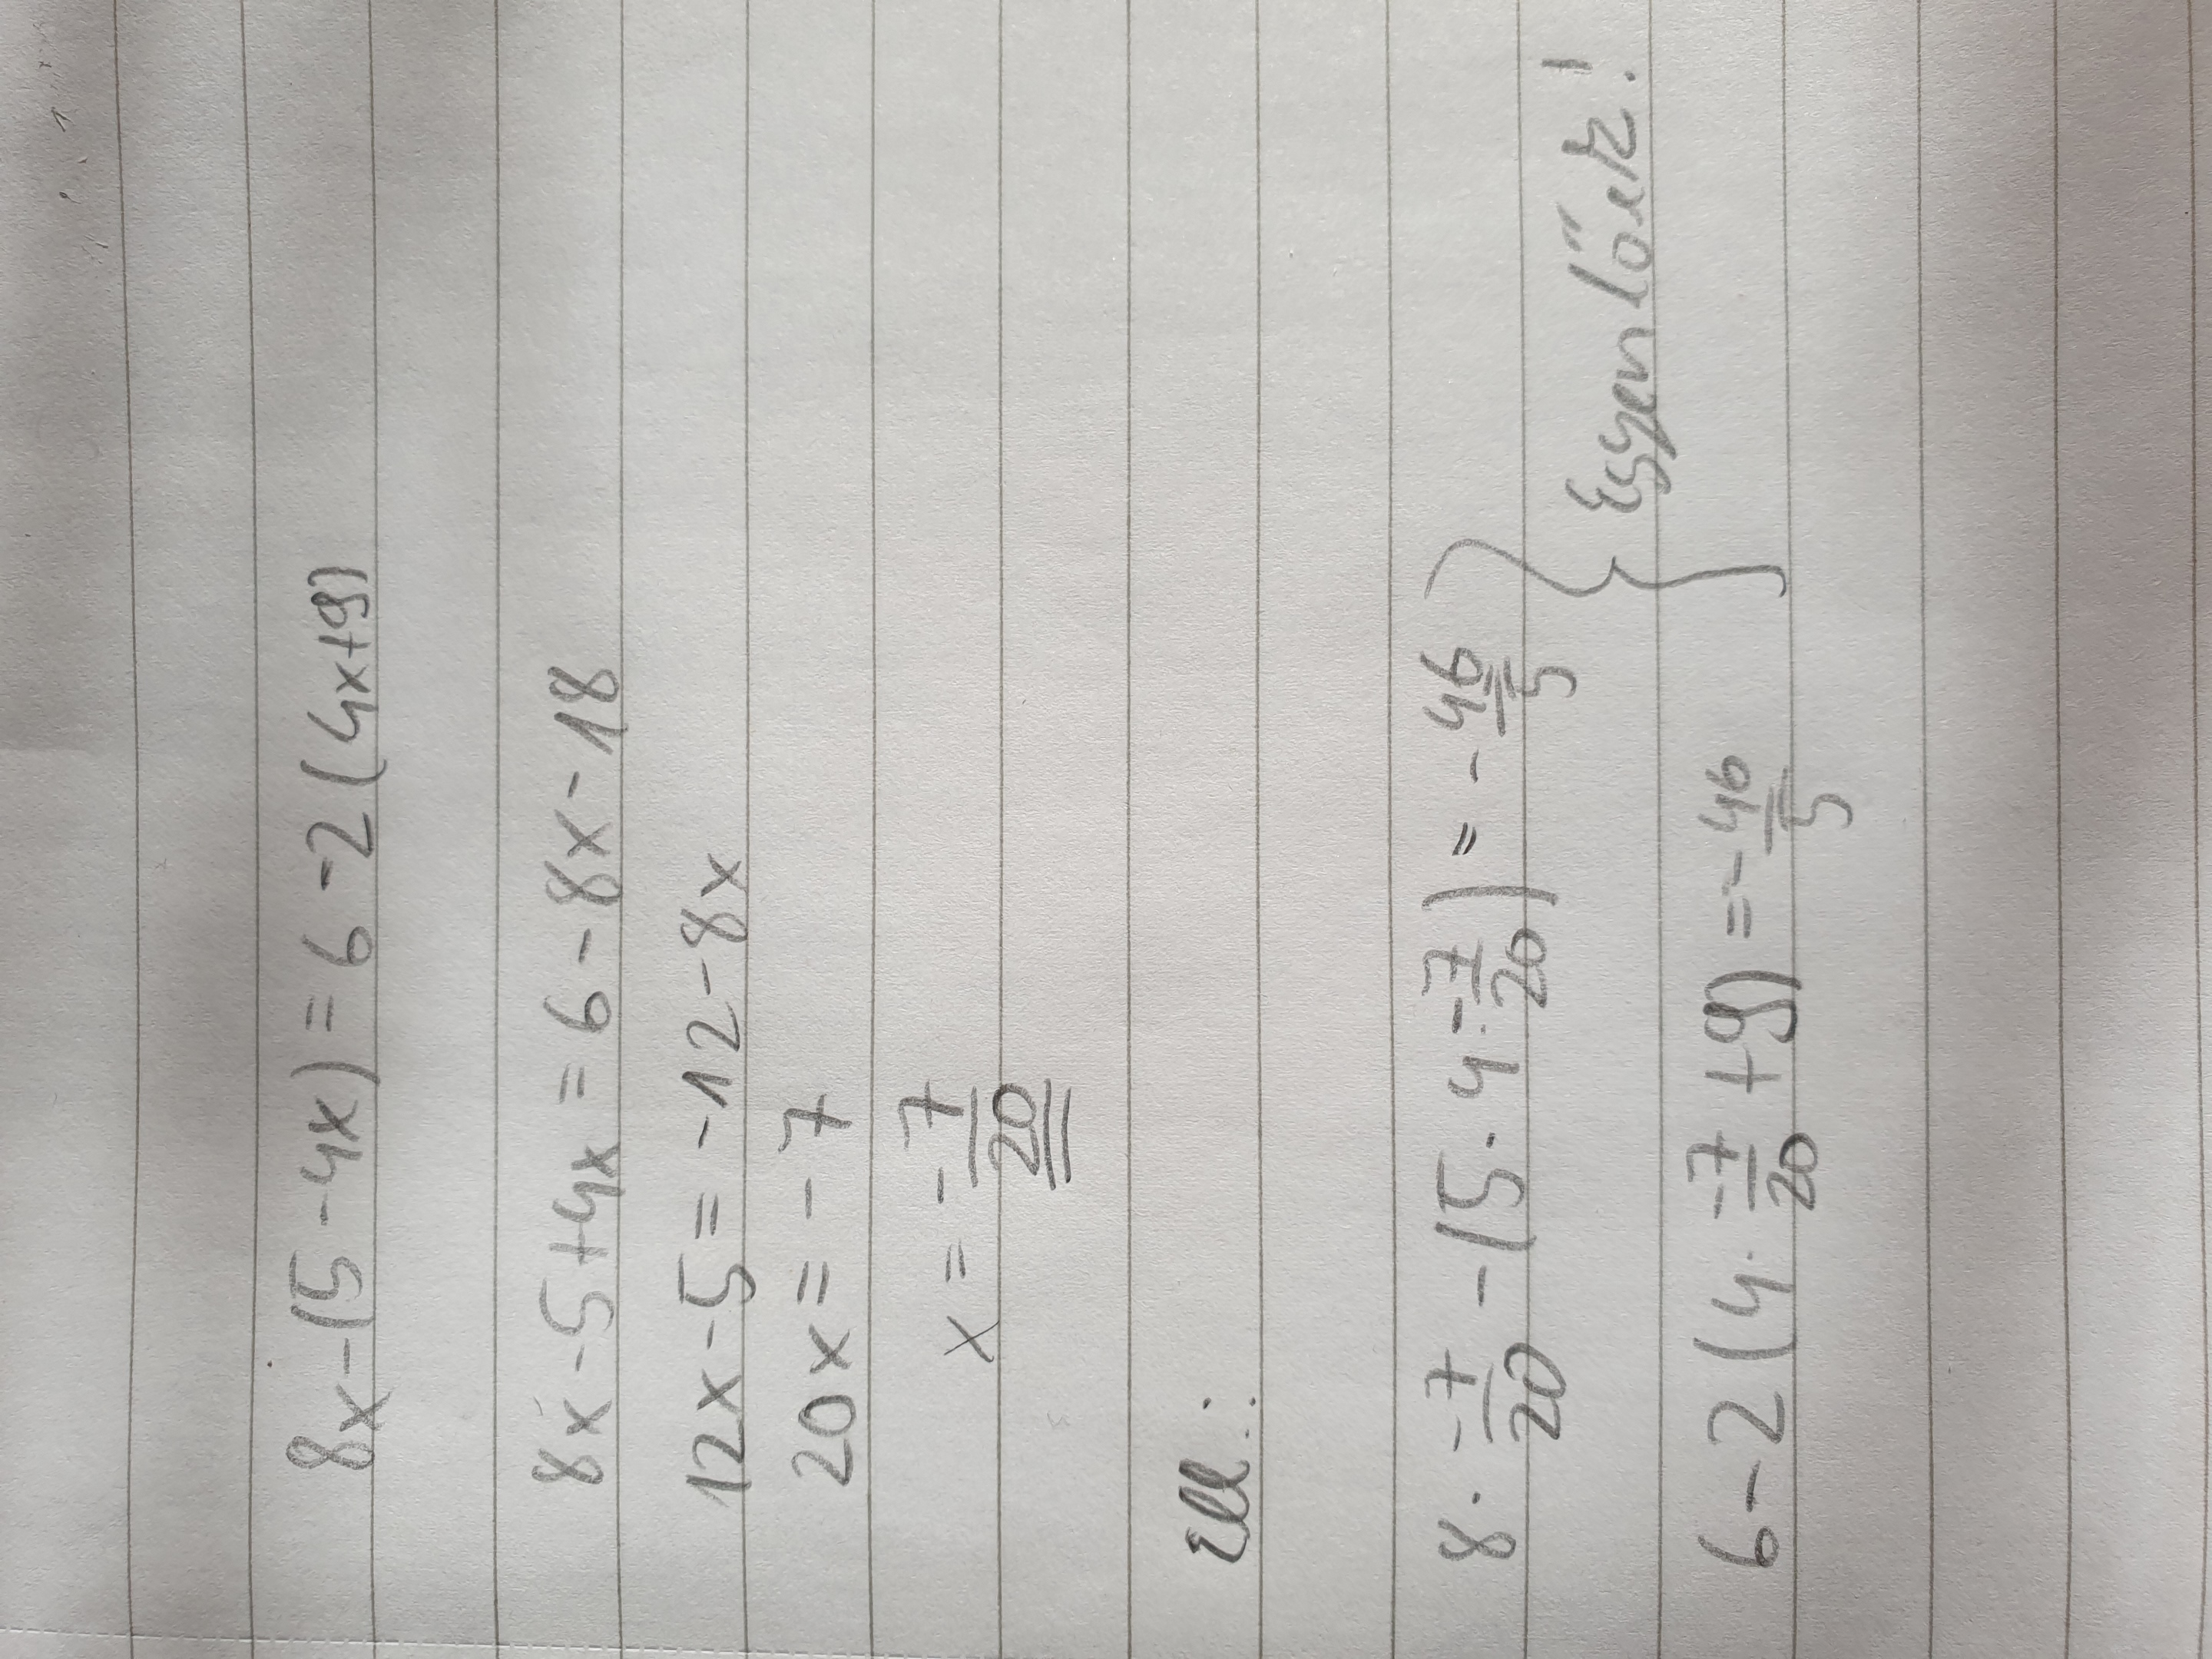 8x-(5-4x)=6-2(4x+9)
8x-5+4x=6-8x-18
12x-5=-12-8x
20x=-7
x=-7/20
Ell.:
8·-7/20-(5·4·-7/20)=-46/5
6-2(4·-7/20+9)=-46/5
Egyenlőek!